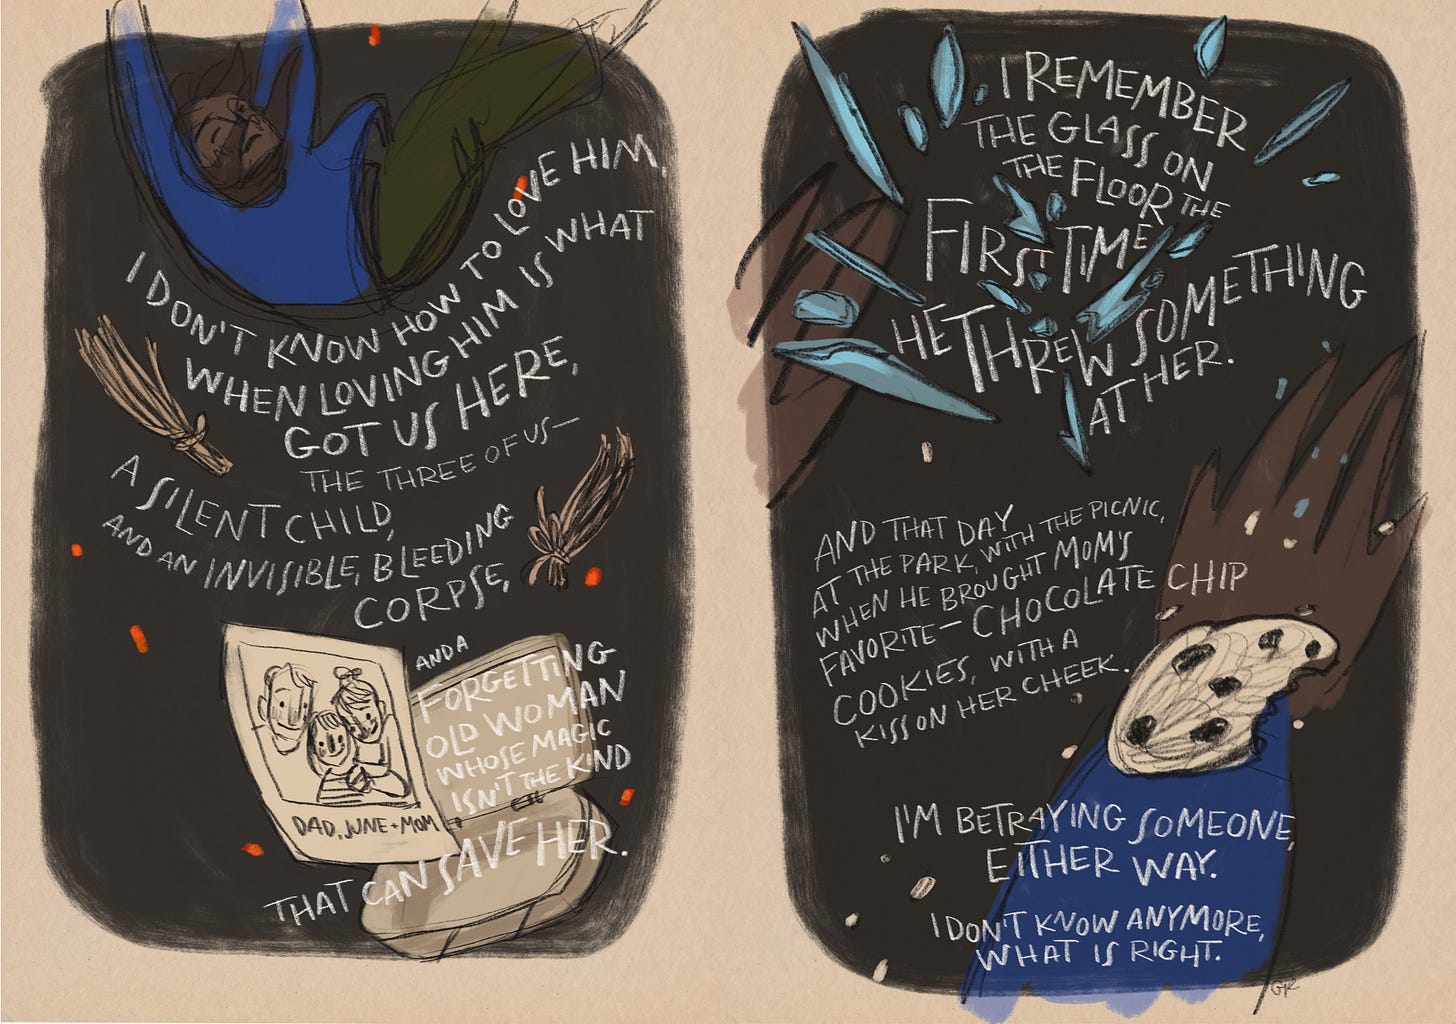 I DON'T KNOW HOW TO LOVE HIM,
WHEN LOVING HIM IS WHAT
GOT US HERE,
THE THREE OF US—
A SILENT CHILD,
AND AN INVISIBLE, BLEEDING
CORPSE,
AND A
FORGETTING
OLD WOMAN
WHOSE MAGIC
ISN'T THE KIND
THAT CAN SAVE HER.
DAD, JUNE + MOM
I REMEMBER
THE GLASS ON
THE FLOOR THE
FIRST TIME
HE THREW SOMETHING
AT HER.
AND THAT DAY
AT THE PARK, WITH THE PICNIC,
WHEN HE BROUGHT MOM'S
FAVORITE— CHOCOLATE CHIP
COOKIES, WITH A
KISS ON HER CHEEK.
I'M BETRAYING SOMEONE,
EITHER WAY.
I DON'T KNOW ANYMORE,
WHAT IS RIGHT.